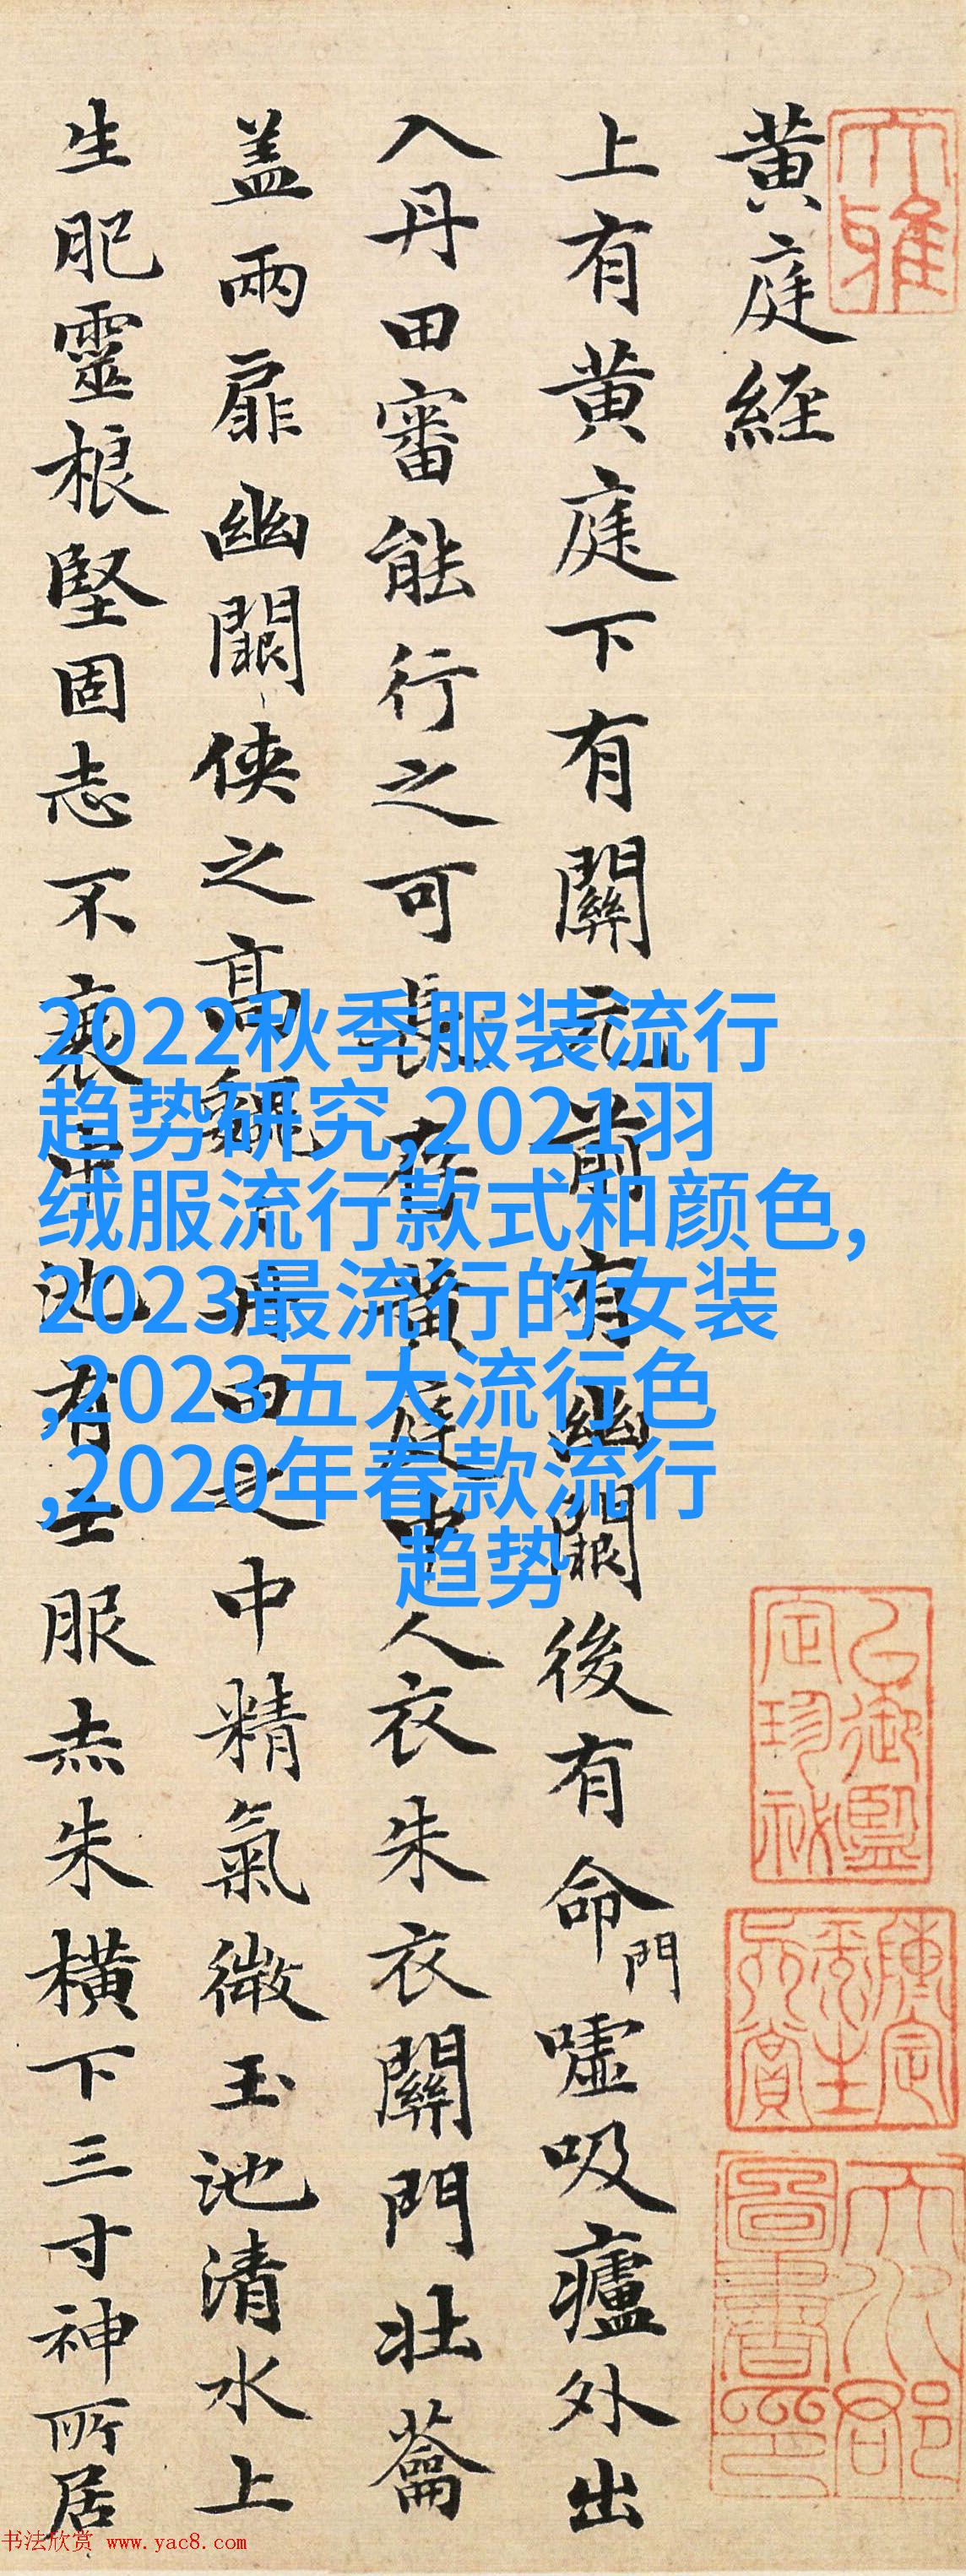 黄庭經
上有黄庭下有關元前有幽闕後有命門噓吸廬外出
入丹田審能行之可長存黄庭中人衣朱衣關門壯蘥
蓋兩扉幽闕俠之高巍丹田之中精氣微玉池清水上
生肥靈根堅固志不衰中池有士服赤朱橫下三寸神所居
2022秋季服装流行
趋势研究,2021羽
绒服流行款式和颜色,
2023最流行的女装
,2023五大流行色
,2020年春款流行
趋势
大雅
书法欣赏 www.yac8.com